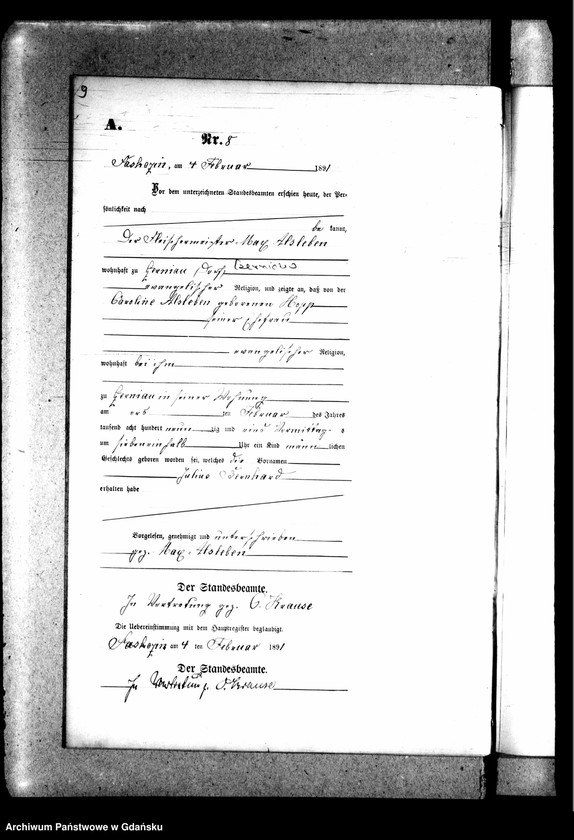 9
A.
Nr. 8
am 4 Februar 1891
Vor dem unterzeichneten Standesbeamten erschien heute, der Per-
sönlichkeit nach
be kannt,
Der Fleischermeister Max Alsleben
wohnhaft zu Czerniau Dorf
evangelischer Religion, und zeigte an, daß von der
Caroline Alsleben geborenen Hopp
seiner Ehefrau
evangelischer Religion,
wohnhaft bei ihm
zu Czerniau in seiner Wohnung
am ten Februar des Jahres
tausend acht hundert neun zig und eins Vormittag s
um siebeneinhalb Uhr ein Kind männ lichen
Geschlechts geboren worden sei, welches die Vornamen
Julius Bernhard
erhalten habe
Vorgelesen, genehmigt und unterschrieben
gez. Max Alsleben
Der Standesbeamte.
In Vertretung gez. O. Krause
Die Uebereinstimmung mit dem Hauptregister beglaubigt.
am 4 ten Februar 1891
Der Standesbeamte.
In Vertretung O. Krause
Archiwum Państwowe w Gdańsku